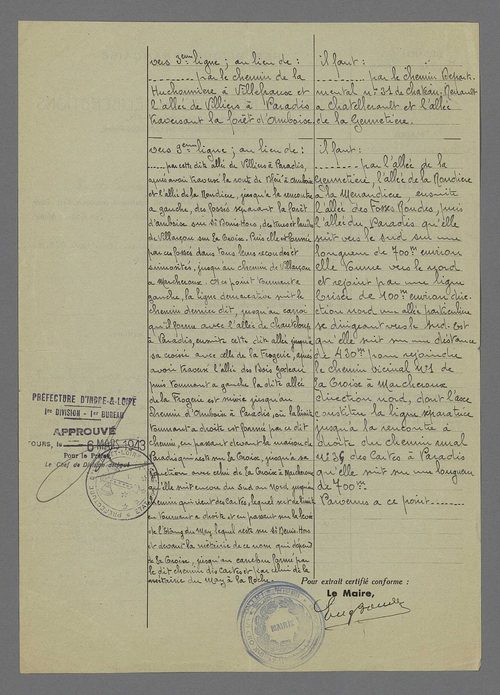 vers 3ème ligne ; au lieu de :
........ par le chemin de la
Huchonnière à Villefrance et
l'allée de Villiers à Paradis
traversant la forêt d'Amboise.
vers 3ème ligne ; au lieu de :
..... par cette dite allée de Villiers à Paradis,
après avoir traversé la route de à Amboise
et l'allée de la Moudière, jusqu'à la rencontre
à gauche, des fossés séparant la forêt
d'Amboise sur St Denis-Hors, des
de Villarçon sur La Croix. Puis elle est formée
par ces fossés dans tous leurs recoudes et
sinuosités, jusqu'au chemin de Villarçon
à Marcheroux. A ce point tournant à
gauche, la ligne démarcative suit le
chemin dernier dit, jusqu'au carroi
qu'il forme avec l'allée de
à Paradis, ensuite cette dite allée jusqu'à
sa croisée avec celle de la Frogerie, après
avoir traversé l'allée des Bois
puis tournant à gauche la dite allée
de la Frogerie est suivie jusqu'au
chemin d'Amboise à Paradis, où la limite
tournant à droite est formée par ce dit
chemin, en passant devant la maison de
Paradis qui reste sur La Croix, jusqu'à sa
jonction avec celui de La Croix à
qu'elle suit encore du Sud au Nord jusqu'au
chemin qui vient des Cartes, lequel sert de limite
en tournant à droite et en passant sur la levée
de l'étang du May lequel reste sur St Denis-Hors
et devant la métairie de ce nom qui dépend
de La Croix, jusqu'au carrefour formé par
le dit chemin des Cartes et par celui de la
métairie du May à la Roche.
Il faut :
........ par le chemin Départ-
mental n° 31 de Château-Renault
à Chatellerault et l'allée
de la Gennetière.
Il faut :
........ par l'allée de la
Gennetière, l'allée de la Moudière
à la Menaudière, ensuite
l'allée des Fosses Rondes, puis
l'allée du Paradis qu'elle
suit vers le sud sur une
longueur de 700m environ
elle tourne vers le nord
et rejoint par une ligne
brisée de 100m environ direc-
tion nord une allée particulière
se dirigeant vers le sud-Est
qu'elle suit sur une distance
de 430m pour rejoindre
le chemin vicinal n°1 de
La Croix à Marcheroux
direction nord, dont l'axe
constitue la ligne séparative
jusqu'à la rencontre à
droite du chemin rural
n°36 des Cartes à Paradis
qu'elle suit sur une longueur
de 700m.
Parvenus à ce point ........
PRÉFECTURE D'INDRE-&-LOIRE
1re DIVISION - 1er BUREAU
APPROUVÉ
TOURS, le 6 MARS 1943
Pour le Préfet
Le Chef de Division délégué
Pour extrait certifié conforme :
Le Maire,
MAIRIE